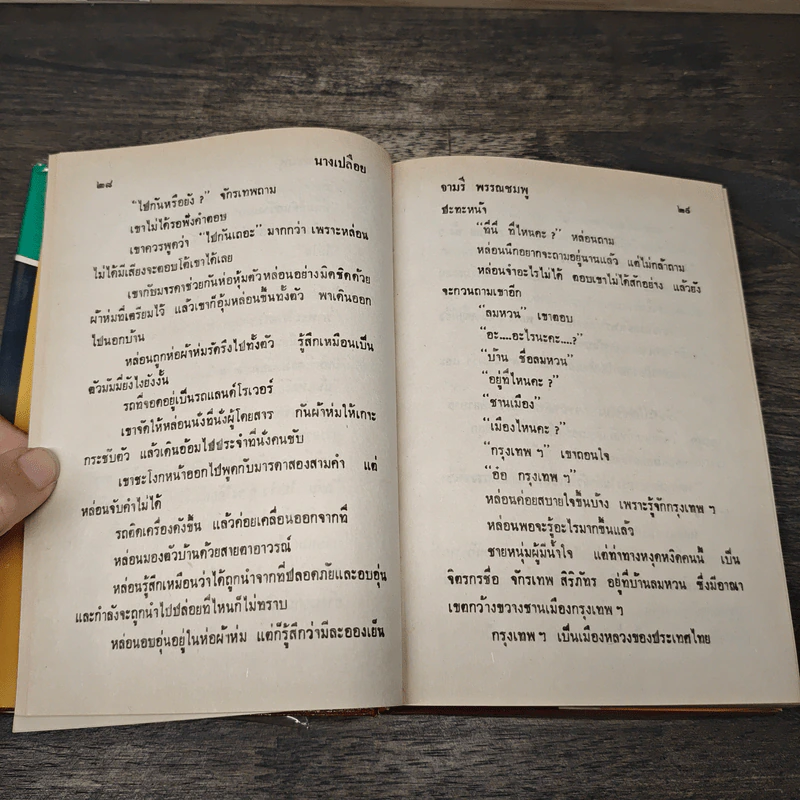 ๒๘
นางเปลือย
"ไปกันหรือยัง ?" จักรเทพถาม
เขาไม่ได้รอฟังคำตอบ
เขาควรพูดว่า "ไปกันเถอะ" มากกว่า เพราะหล่อน
ไม่ได้มีเสียงจะตอบโต้เขาได้เลย
เขากับมารดาช่วยกันห่อหุ้มตัวหล่อนอย่างมิดชิดด้วย
ผ้าห่มที่เตรียมไว้ แล้วเขาก็อุ้มหล่อนขึ้นทั้งตัว พาเดินออก
ไปนอกบ้าน
หล่อนถูกห่อผ้าห่มรัดรึงไปทั้งตัว รู้สึกเหมือนเป็น
ตัวมัมมี่ยังไงยังงั้น
รถที่จอดอยู่เป็นรถแลนด์โรเวอร์
เขาจัดให้หล่อนนั่งที่นั่งผู้โดยสาร กันผ้าห่มให้เกาะ
กระชับตัว แล้วเดินอ้อมไปประจำที่นั่งคนขับ
เขาชะโงกหน้าออกไปพูดกับมารดาสองสามคำ แต่
หล่อนจับคำไม่ได้
รถติดเครื่องดังขึ้น แล้วค่อยเคลื่อนออกจากที่
หล่อนมองตัวบ้านด้วยสายตาอาวรณ์
หล่อนรู้สึกเหมือนว่าได้ถูกนำจากที่ปลอดภัยและอบอุ่น
และกำลังจะถูกนำไปปล่อยที่ไหนก็ไม่ทราบ
หล่อนอบอุ่นอยู่ในห่อผ้าห่ม แต่ก็รู้สึกว่ามีละอองเย็น
จามรี พรรณชมพู
๒๙
ปะทะหน้า
"ที่นี่ ที่ไหนคะ ?" หล่อนถาม
หล่อนนึกอยากจะถามอยู่นานแล้ว แต่ไม่กล้าถาม
หล่อนจำอะไรไม่ได้ ตอบเขาไม่ได้สักอย่าง แล้วยัง
จะกวนถามเขาอีก
"ลมหวน" เขาตอบ
"อะ....อะไรนะคะ....?"
"บ้าน ชื่อลมหวน"
"อยู่ที่ไหนคะ ?"
"ชานเมือง"
"เมืองไหนคะ ?"
"กรุงเทพ ฯ" เขาถอนใจ
"อ๋อ กรุงเทพ ฯ"
หล่อนค่อยสบายใจขึ้นบ้าง เพราะรู้จักกรุงเทพ ฯ
หล่อนพอจะรู้อะไรมากขึ้นแล้ว
ชายหนุ่มผู้มีน้ำใจ แต่ท่าทางหงุดหงิดคนนี้ เป็น
จิตรกรชื่อ จักรเทพ สิริภัทร อยู่ที่บ้านลมหวน ซึ่งมีอาณา
เขตกว้างขวางชานเมืองกรุงเทพ ฯ
กรุงเทพ ฯ เป็นเมืองหลวงของประเทศไทย